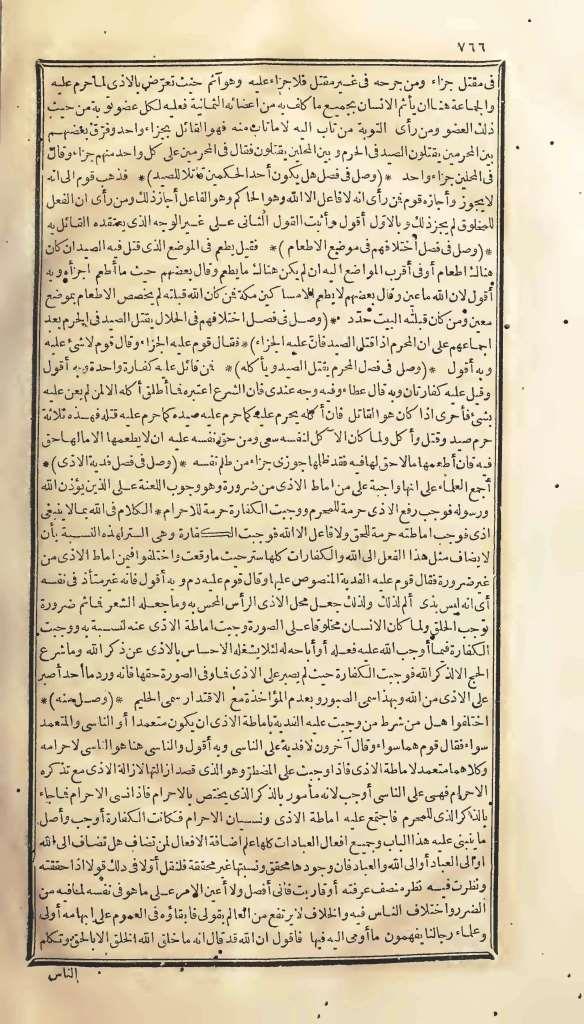 ٧٦٦
فى مقتل جزاء ومن جرحه فى غير مقتل فلا جزاء عليه وهو آثم حيث تعرّض بالاذى لما حرم عليه
والجماعة هنا ان يأثم الانسان بجميع ما كلف به من أعضائه الثمانية فعليه لكل عضو توبة من حيث
ذلك العضو ومن رأى التوبة من تاب اليه لا ما تاب منه فهو القائل بجزاء واحد وفرّق بعضهم
بين المحرمين يقتلون الصيد فى الحرم وبين المحلين يقتلون فقال فى المحرمين على كل واحد منهم جزاء وقال
فى المحلين جزاء واحد *(وصل فى فصل هل يكون أحد الحكمين قاتلا للصيد)* فذهب قوم الى انه
لا يجوز وأجازه قوم فمن رأى انه لا فاعل الا الله وهو الحاكم وهو الفاعل أجاز ذلك ومن رأى ان الفعل
للمخلوق لم يجز ذلك وبالاوّل أقول وأثبت القول الثانى على غير الوجه الذى يعتقده القائل به
*(وصل فى فصل اختلافهم فى موضع الاطعام)* فقيل يطعم فى الموضع الذى قتل فيه الصيد ان كان
هناك اطعام أو فى أقرب المواضع اليه ان لم يكن هناك ما يطعم وقال بعضهم حيث ما أطعم اجزأه وبه
أقول لان الله ما عين وقال بعضهم لا يطعم الا مساكين مكة فمن كان الله قبلته لم يخصص الاطعام بموضع
معين ومن كان قبلته البيت حدّد *(وصل فى فصل اختلافهم فى الحلال يقتل الصيد فى الحرم بعد
اجماعهم على ان المحرم اذا قتل الصيد فان عليه الجزاء)* فقال قوم عليه الجزاء وقال قوم لا شئ عليه
وبه أقول *(وصل فى فصل المحرم يقتل الصيد ويأكله)* فمن قائل عليه كفارة واحدة وبه أقول
وقيل عليه كفارتان وبه قال عطاء وفيه وجه عندى فان الشرع اعتبره فما أطلق أكله الا لمن لم يعن عليه
بشئ فأحرى اذا كان هو القاتل فان أكله يحرم عليه كما حرم عليه صيده كما حرم عليه قتله فهذه ثلاثة
حرم صيد وقتل وأكل ولما كان الآكل لنفسه سعى ومن حق نفسه عليه ان لا يطعمها الا ما لها حق
فيه فان أطعمها ما لا حق لها فيه فقد ظلمها جوزى جزاء من ظلم نفسه *(وصل فى فصل فدية الاذى)*
أجمع العلماء على انها واجبة على من اماط الاذى من ضرورة وهو وجوب اللعنة على الذين يؤذون الله
ورسوله فوجب رفع الاذى حرمة للمحرم ووجبت الكفارة حرمة للاحرام * الكلام فى الله بما لا ينبغى
اذى فوجب اماطته حرمة للحق ولا فاعل الا الله فوجبت الكفارة وهى الستر لهذه النسبة بأن
لا يضاف مثل هذا الفعل الى الله والكفارات كلها ستر حيث ما وقعت واختلفوا فيمن اماط الاذى من
غير ضرورة فقال قوم عليه الفدية المنصوص عليها وقال قوم عليه دم وبه أقول فانه غير متأذ فى نفسه
أى انه ليس بذى ألم لذلك ولذلك جعل محل الاذى الرأس المحس به وما جعله الشعر فما ثم ضرورة
توجب الحلق ولما كان الانسان مخلوقا على الصورة وجبت اماطة الاذى عنه لنسبة به ووجبت
الكفارة فيما أوجب الله عليه فعله أو أباحه له لئلا يشغله الاحساس بالاذى عن ذكر الله وما شرع
الحج الا لذكر الله فوجبت الكفارة حيث لم يصبر على الاذى فما وفى الصورة حقها فانه ورد ما أحد أصبر
على الاذى من الله وبهذا سمى الصبور وبعدم المؤاخذة مع الاقتدار سمى الحليم *(وصل منه)*
اختلفوا هل من شرط من وجبت عليه الفدية باماطة الاذى ان يكون متعمدا أو الناسى والمتعمد
سواء فقال قوم هما سواء وقال آخرون لا فدية على الناسى وبه أقول والناسى هنا هو الناسى لاحرامه
وكلاهما متعمد لاماطة الاذى فاذا وجبت على المضطرّ وهو الذى قصد ازالتها لازالة الاذى مع تذكره
الاحرام فهى على الناسى أوجب لانه مأمور بالذكر الذى يختص بالاحرام فاذا نسى الاحرام فما جاء
بالذكر الذى للمحرم فاجتمع عليه اماطة الاذى ونسيان الاحرام فكانت الكفارة أوجب وأصل
ما ينبنى عليه هذا الباب وجميع افعال العبادات كلها علم اضافة الافعال لمن تضاف هل تضاف الى الله
أو الى العباد أو الى الله والعباد فان وجودها محقق ونسبتها غير محققة فلنقل أوّلا فى ذلك قولا اذا حققته
ونظرت فيه نظر منصف عرفته أو قاربت فانى أفصل ولا أعين الامر على ما هو فى نفسه لما فيه من
الضرر واختلاف الناس فيه والخلاف لا يرتفع من العالم بقولى فابقاؤه فى العموم على ابهامه أولى
وعلماء رجالنا يفهمون ما أومى اليه فيها فاقول ان الله قد قال انه ما خلق الله الخلق الا بالحق وتكلم
الناس